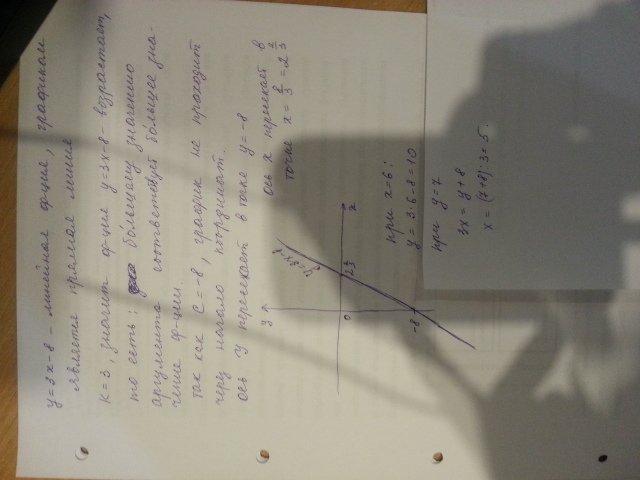 y=3x-8 - линейная ф-ция, графиком
является прямая линия
K=3, значит ф-ция y=3x-8 - возрастает,
то есть: большему значению
аргумента соответствует большее зна-
чение ф-ции.
так как C=-8, график не проходит
через начало координат.
ось y пересекает в точке y=-8
ось x пересекает в
точке x = 8/3 = 2 2/3
y
y=3x-8
2 2/3
x
0
-8
при x=6:
y = 3·6-8=10
при y=7
3x = y+8
x = (7+8):3=5.